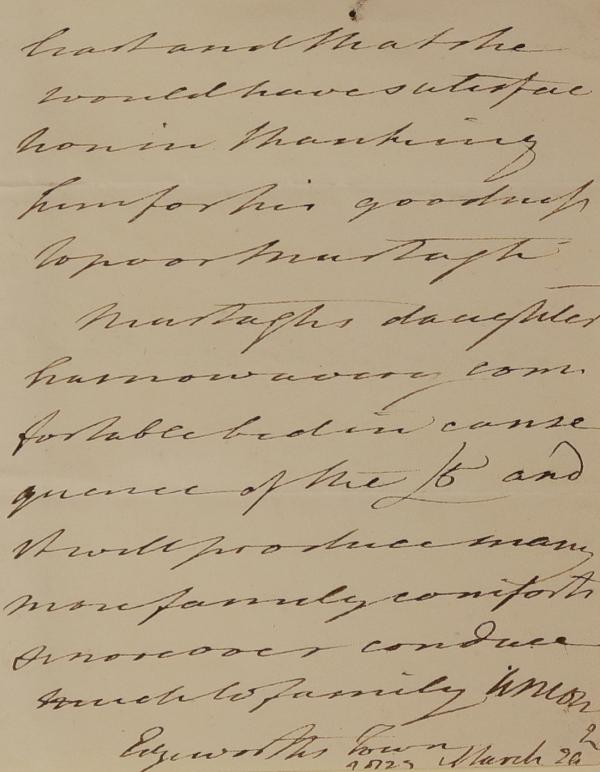 last and that she
would have satisfac
tion in thanking
him for his goodness
to poor Murtagh
Murtaghs daughter
has now a very com
fortable bed in conse
quence of the £5 and
it will produce many
more family comforts
& moreover conduce
much to family union
Edgeworths Town
March